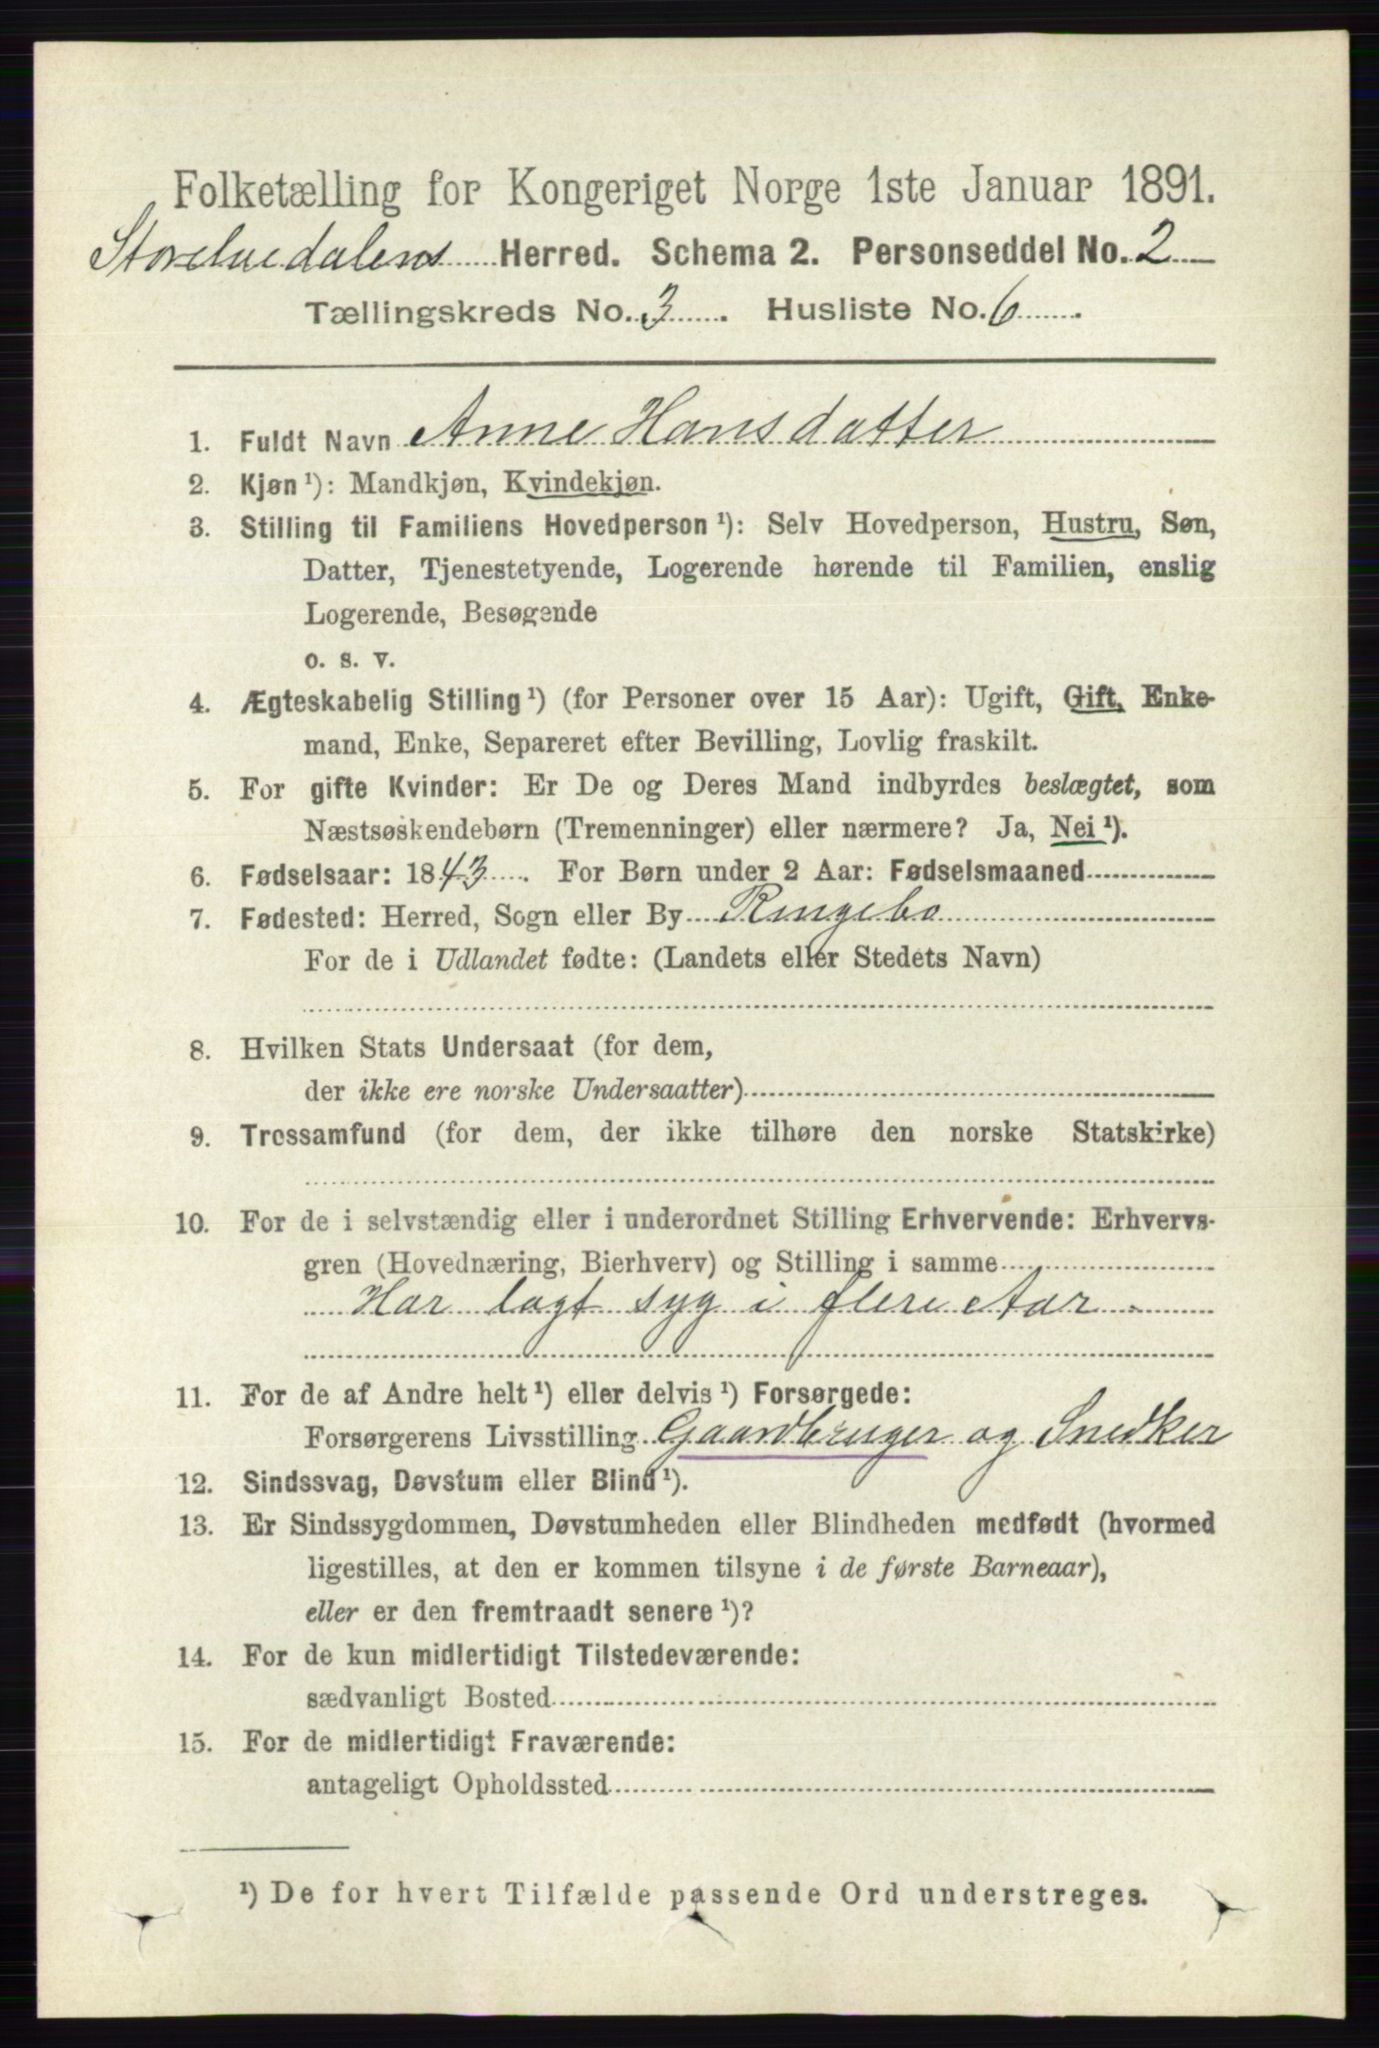 Folketælling for Kongeriget Norge 1ste Januar 1891.
Storelvedalens Herred. Schema 2. Personseddel No. 2
Tællingskreds No. 3. Husliste No. 6.
1. Fuldt Navn Anne Hansdatter
2. Kjøn ¹): Mandkjøn, Kvindekjøn.
3. Stilling til Familiens Hovedperson ¹): Selv Hovedperson, Hustru, Søn,
Datter, Tjenestetyende, Logerende hørende til Familien, enslig
Logerende, Besøgende
o. s. v.
4. Ægteskabelig Stilling ¹) (for Personer over 15 Aar): Ugift, Gift, Enke-
mand, Enke, Separeret efter Bevilling, Lovlig fraskilt.
5. For gifte Kvinder: Er De og Deres Mand indbyrdes beslægtet, som
Næstsøskendebørn (Tremenninger) eller nærmere? Ja, Nei ¹).
6. Fødselsaar: 1843. For Børn under 2 Aar: Fødselsmaaned
7. Fødested: Herred, Sogn eller By Ringebo
For de i Udlandet fødte: (Landets eller Stedets Navn)
8. Hvilken Stats Undersaat (for dem,
der ikke ere norske Undersaatter)
9. Trossamfund (for dem, der ikke tilhøre den norske Statskirke)
10. For de i selvstændig eller i underordnet Stilling Erhvervende: Erhvervs-
gren (Hovednæring, Bierhverv) og Stilling i samme
Har lagt syg i flere Aar.
11. For de af Andre helt ¹) eller delvis ¹) Forsørgede:
Forsørgerens Livsstilling Gaardbruger og Snedker
12. Sindssvag, Døvstum eller Blind ¹).
13. Er Sindssygdommen, Døvstumheden eller Blindheden medfødt (hvormed
ligestilles, at den er kommen tilsyne i de første Barneaar),
eller er den fremtraadt senere ¹)?
14. For de kun midlertidigt Tilstedeværende:
sædvanligt Bosted
15. For de midlertidigt Fraværende:
antageligt Opholdssted
¹) De for hvert Tilfælde passende Ord understreges.